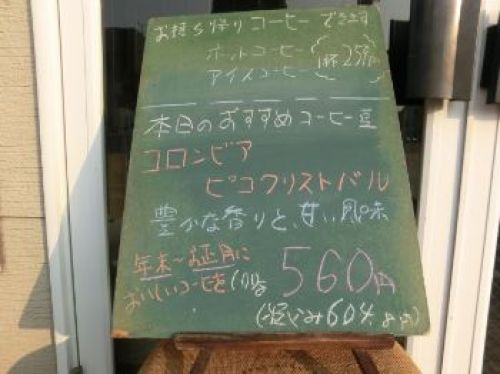 お持ち帰りコーヒーできます
ホットコーヒー
アイスコーヒー
1杯
本日のおすすめコーヒー豆
コロンビア
ピコクリストバル
豊かな香りと、甘い風味
年末～お正月に
おいしいコーヒーを
560円
(税込み604